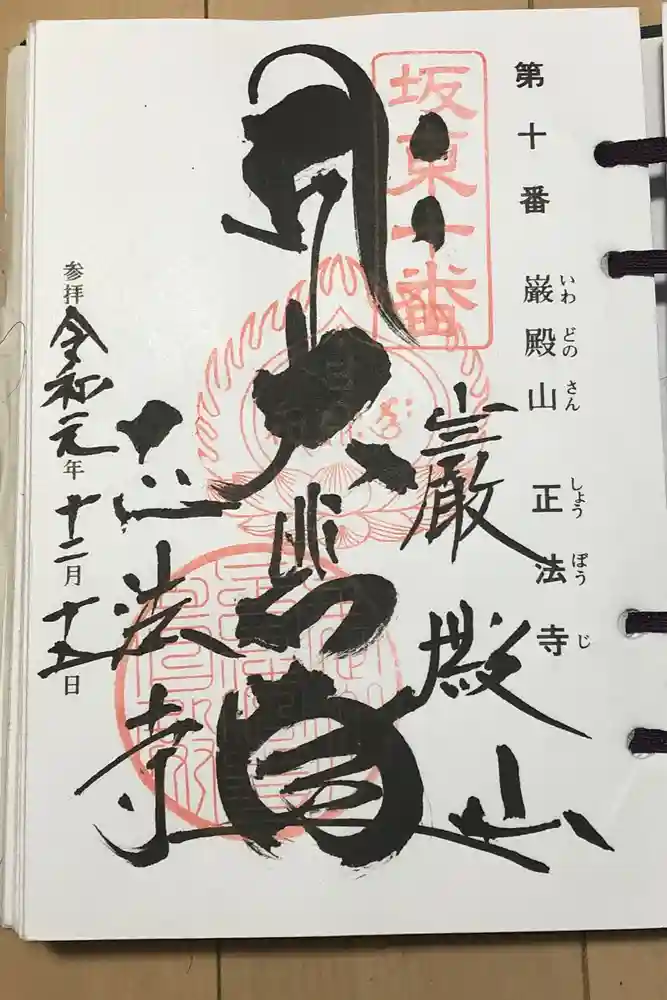 第十番 巌殿山 正法寺
いわ どの さん しょう ぼう じ
坂東十番
巌殿山
正法寺
参拝 令和元年十二月十五日